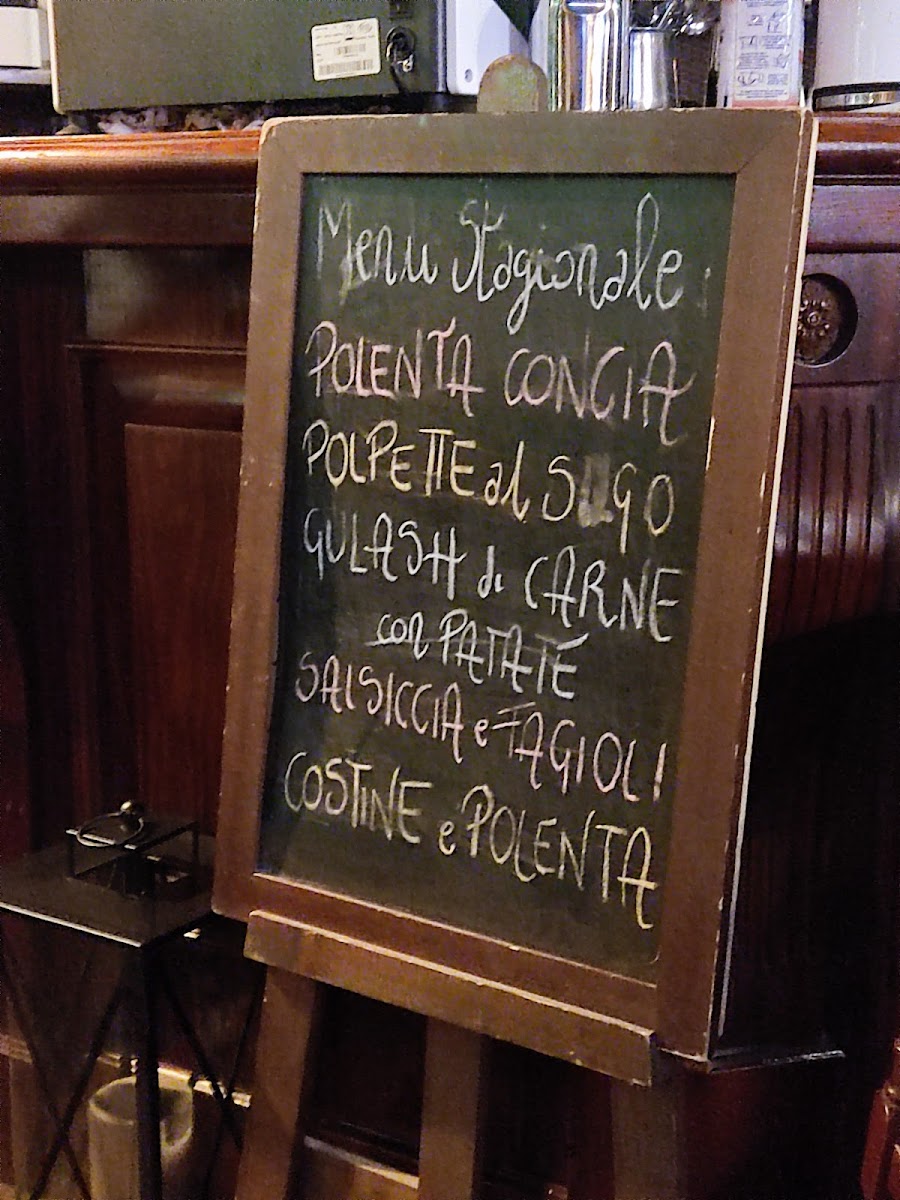 Menu Stagionale
POLENTA CONCIA
POLPETTE al SUGO
GULASH di CARNE
con PATATE
SALSICCIA e FAGIOLI
COSTINE e POLENTA